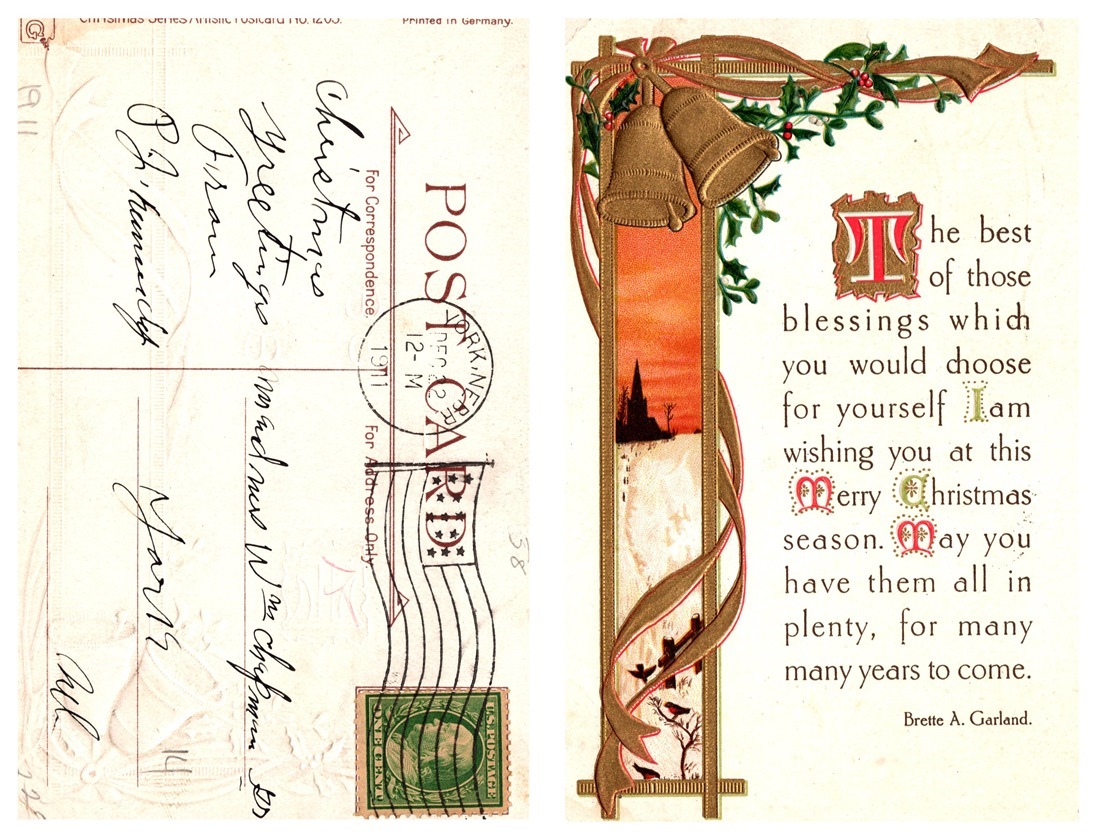 Christmas Series Artistic Postcard No. 1205.
Printed in Germany.
POST CARD
For Correspondence.
For Address Only.
YORK, NEBR
DEC 22
12-M
1911
Christmas
Greetings
From
P. J.
Mr and mrs Wm Chapman Sr
York
Neb
14
1911
38
U.S. POSTAGE
ONE CENT
The best
of those
blessings which
you would choose
for yourself I am
wishing you at this
Merry Christmas
season. May you
have them all in
plenty, for many
many years to come.
Brette A. Garland.